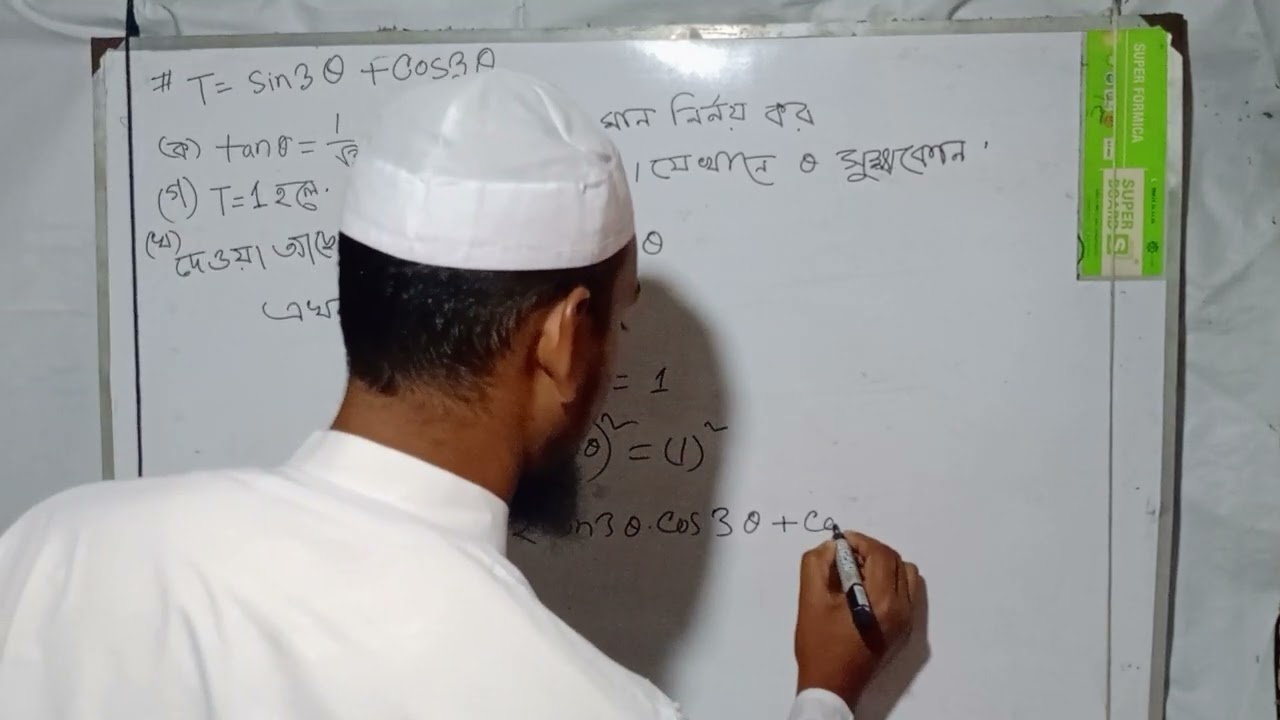 # T= Sin3θ +Cos3θ
(ক) tanθ = 1 মান নির্নয় কর
(গ) T=1 হলে । যেখানে θ সুক্ষ্মকোন .
(খ) দেওয়া θ
= 1
θ)² = (1)²
n3θ.Cos3θ + Co
SUPER FORMICA
SUPER
BOARD